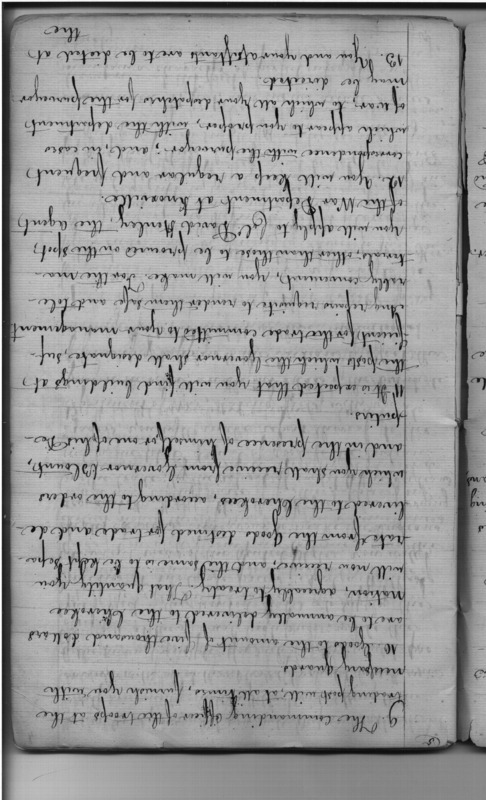 9. The commanding officer of the troops at the
trading post will, at all times, furnish you with
necessary guards
10 Goods to the amount of five thousand dollars
are to be annually delivered to the Cherokee
Nation, agreeably to treaty. That quantity you
will now receive, and this same is to be kept sepa-
rate from the goods destined for trade and de-
livered to the Cherokees, according to the orders
which you shall receive from Governor Blount,
and in the presence of himself, or one of his De-
puties.
11. It is expected that you will find buildings at
the posts which the Governor shall designate, suf-
ficient for the trade committed to your management
any repairs requisite to render them safe and tole-
rably convenient, you will make. For the ma-
terials, other than those to be procured on the spot,
you will apply to Col. David Henley, the Agent
of the War Department at Knoxville.
12. You will keep a regular and frequent
correspondence with the purveyor; and, in cases
which appear to you proper, with the department
of war; to which all your dispatches for the purveyor
may be directed
13. You and your assistants are to be dieted at
the